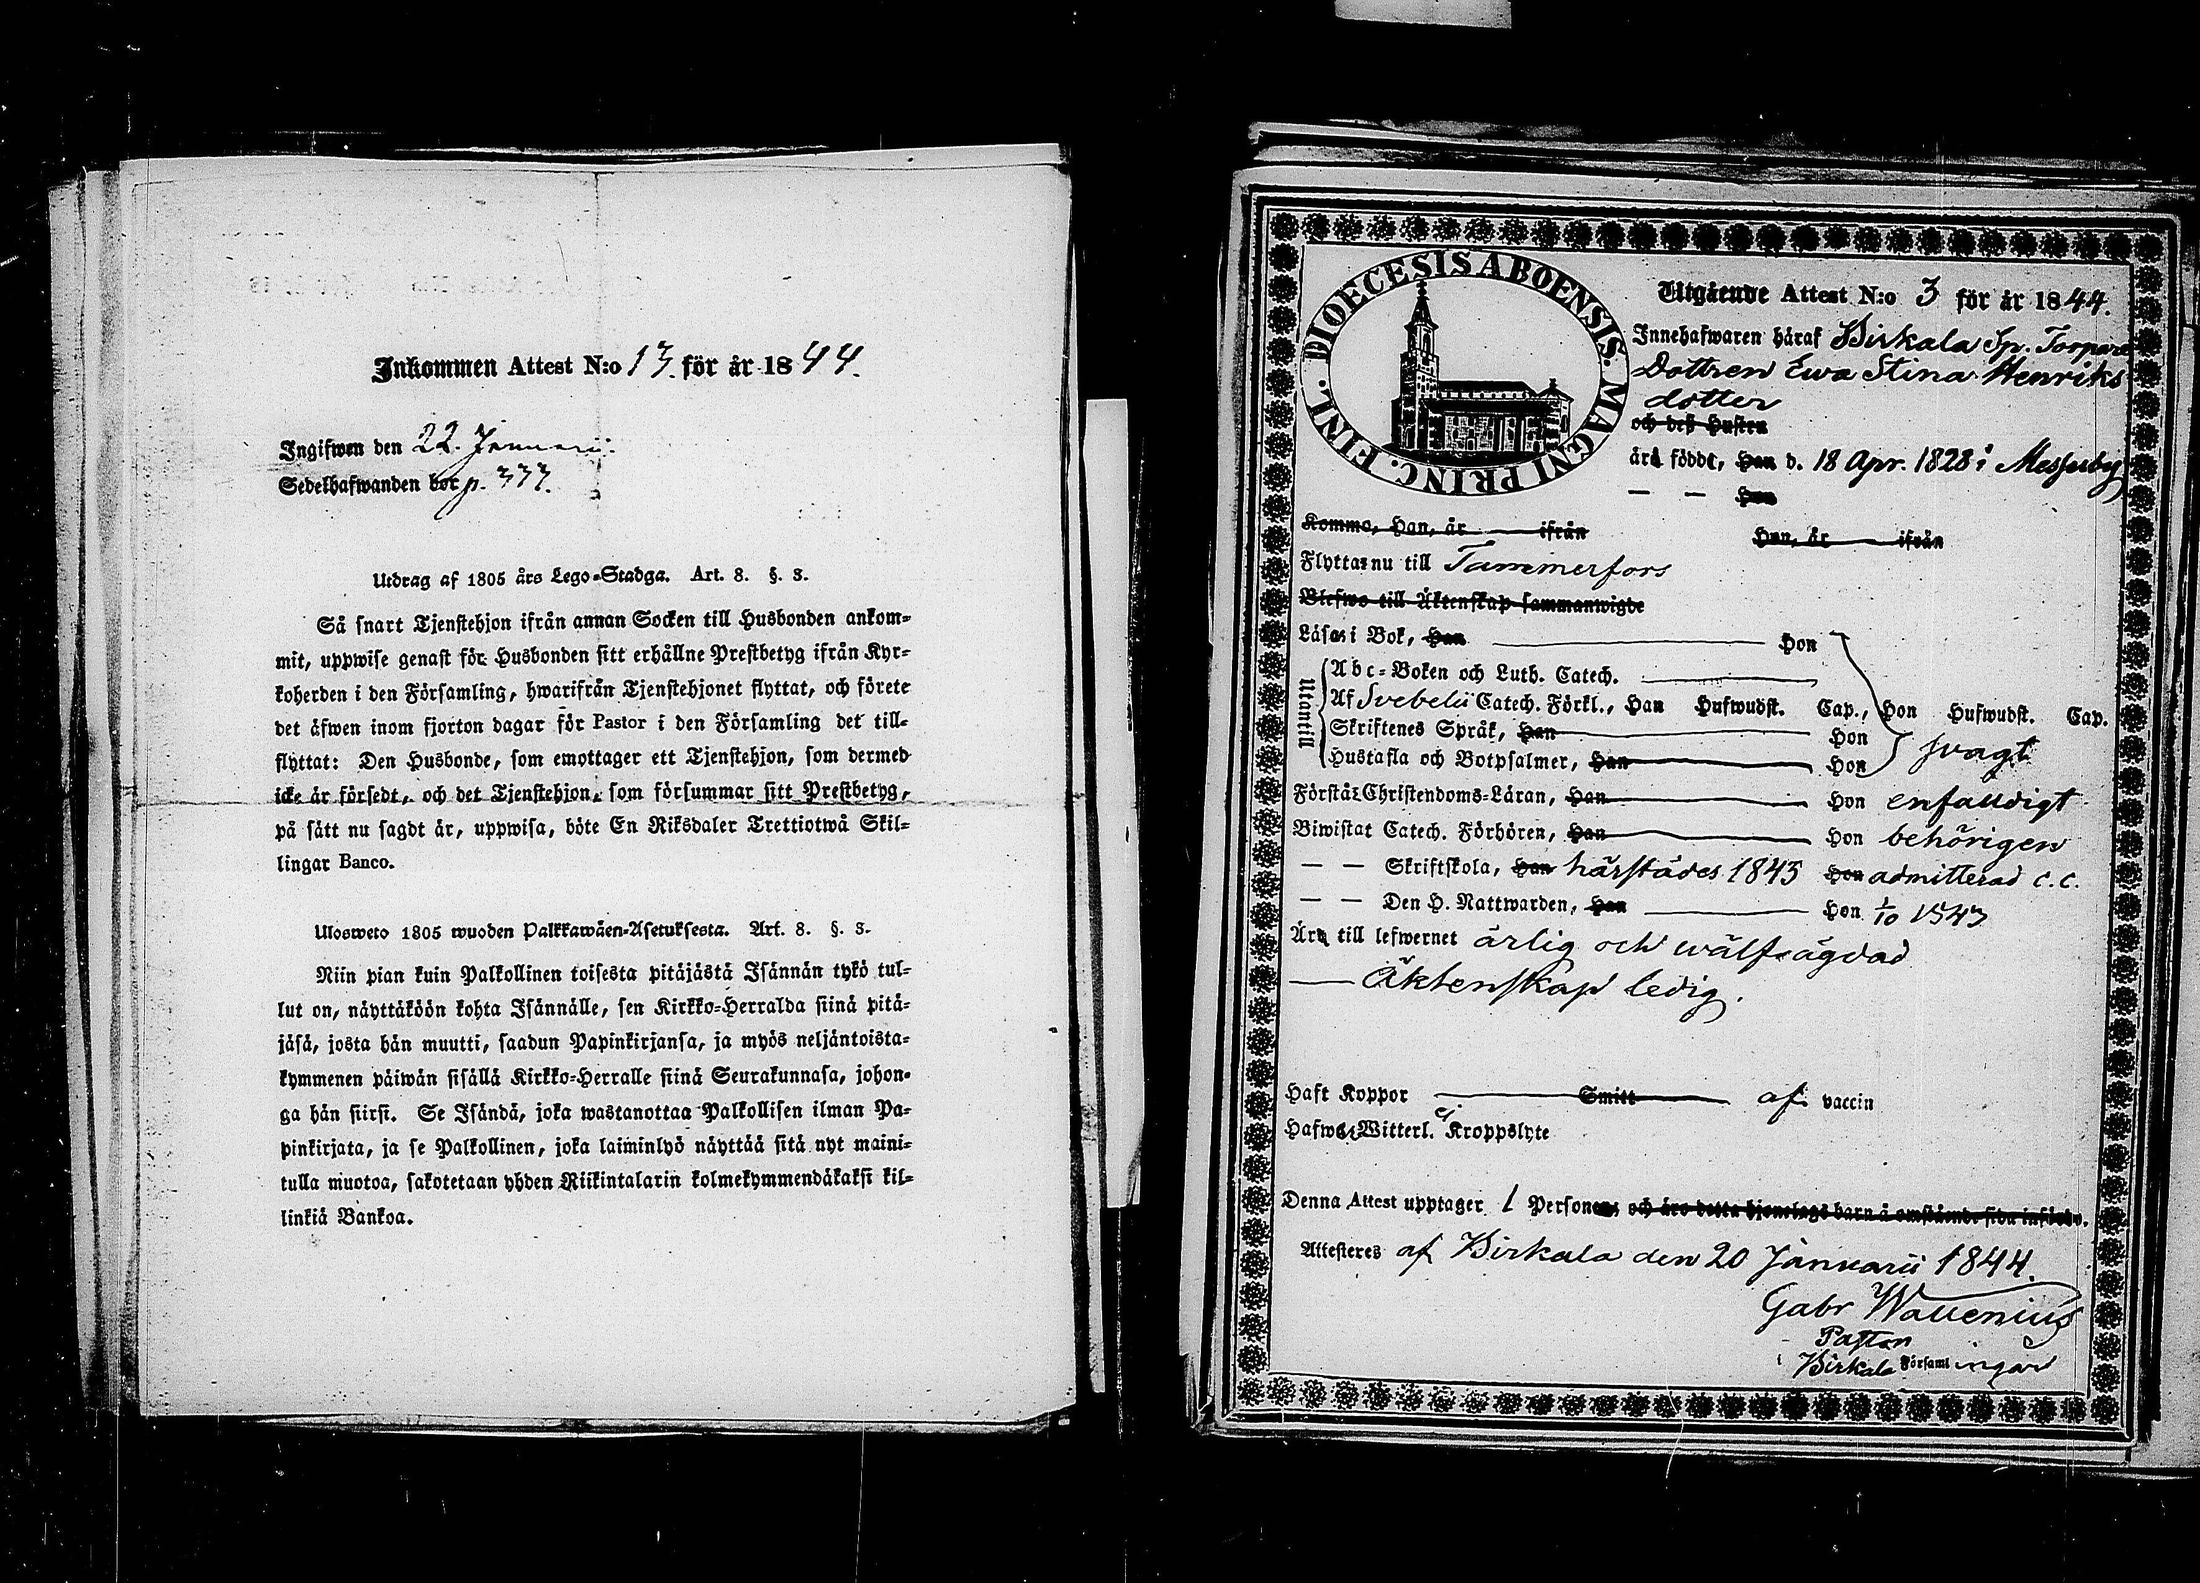 Inkommen Attest N:o 13. för år 1844.
Ingifwen den 22. Januarii.
Sedelhafwanden bor p. 377.
Utdrag af 1805 års Lego-Stadga. Art. 8. §. 3.
Så snart Tjenstehjon ifrån annan Socken till Husbonden ankom-
mit, uppwise genast för Husbonden sitt erhållne Prestbetyg ifrån Kyr-
koherden i den Församling, hwarifrån Tjenstehjonet flyttat, och förete
det äfwen inom fjorton dagar för Pastor i den Församling det till-
flyttat: Den Husbonde, som emottager ett Tjenstehjon, som dermed
icke är försedt, och det Tjenstehjon, som försummar sitt Prestbetyg,
på sätt nu sagdt är, uppwisa, böte En Riksdaler Trettiotwå Skil-
lingar Banco.
Ulosweto 1805 wuoden Palkkawäen-Asetuksesta. Art. 8. §. 3.
Niin pian kuin Palkollinen toisesta pitäjästä Isännän tykö tul-
lut on, näyttäköön kohta Isännälle, sen Kirkko-Herralda siinä pitä-
jäsä, josta hän muutti, saadun Papinkirjansa, ja myös neljäntoista-
kymmenen päiwän sisällä Kirkko-Herralle siinä Seurakunnasa, johon-
ga hän siirsi. Se Isändä, joka wastanottaa Palkollisen ilman Pa-
pinkirjata, ja se Palkollinen, joka laiminlyö näyttää sitä nyt maini-
tulla muotoa, sakotetaan yhden Riikintalarin kolmekymmendäkaksi kil-
linkiä Bankoa.
DIOECESIS ABOENSIS. MAGNI PRINC. FINL.
Utgående Attest N:o 3 för år 1844.
Innehafwaren häraf Birkala Sp. Torpare
Dottren Ewa Stina Henriks
dotter
och deß Hustru
är född, Han d. 18 Apr. 1828 i Messuby
— — Hon
Kommo, Han, år — ifrån Hon, år — ifrån
Flyttar nu till Tammerfors
Blefwo till Äktenskap sammanwigde
Läser i Bok, Han — Hon
Utantill
Abc-Boken och Luth. Catech.
Af Svebelii Catech. Förkl., Han Hufwudst. Cap., Hon Hufwudst. Cap.
Skriftenes Språk, Han — Hon
Hustafla och Botpsalmer, Han — Hon svagt
Förstår Christendoms-Läran, Han — Hon enfaldigt
Biwistat Catech. Förhören, Han — Hon behörigen
— — Skriftskola, Han härstädes 1843 Hon admitterad c.c.
— — Den H. Nattwarden, Han — Hon 1/10 1843
Är till lefwernet ärlig och wälfrägdad
— Äktenskap ledig.
Haft Koppor — Smitt — af vaccin
Hafwer Witterl. ej Kroppslyte
Denna Attest upptager 1 Person och äro detta hjonelags barn å omstående sida införde.
Attesteres af Birkala den 20 Januarii 1844.
Gabr Wallenius
Pastor
i Birkala Församlingar